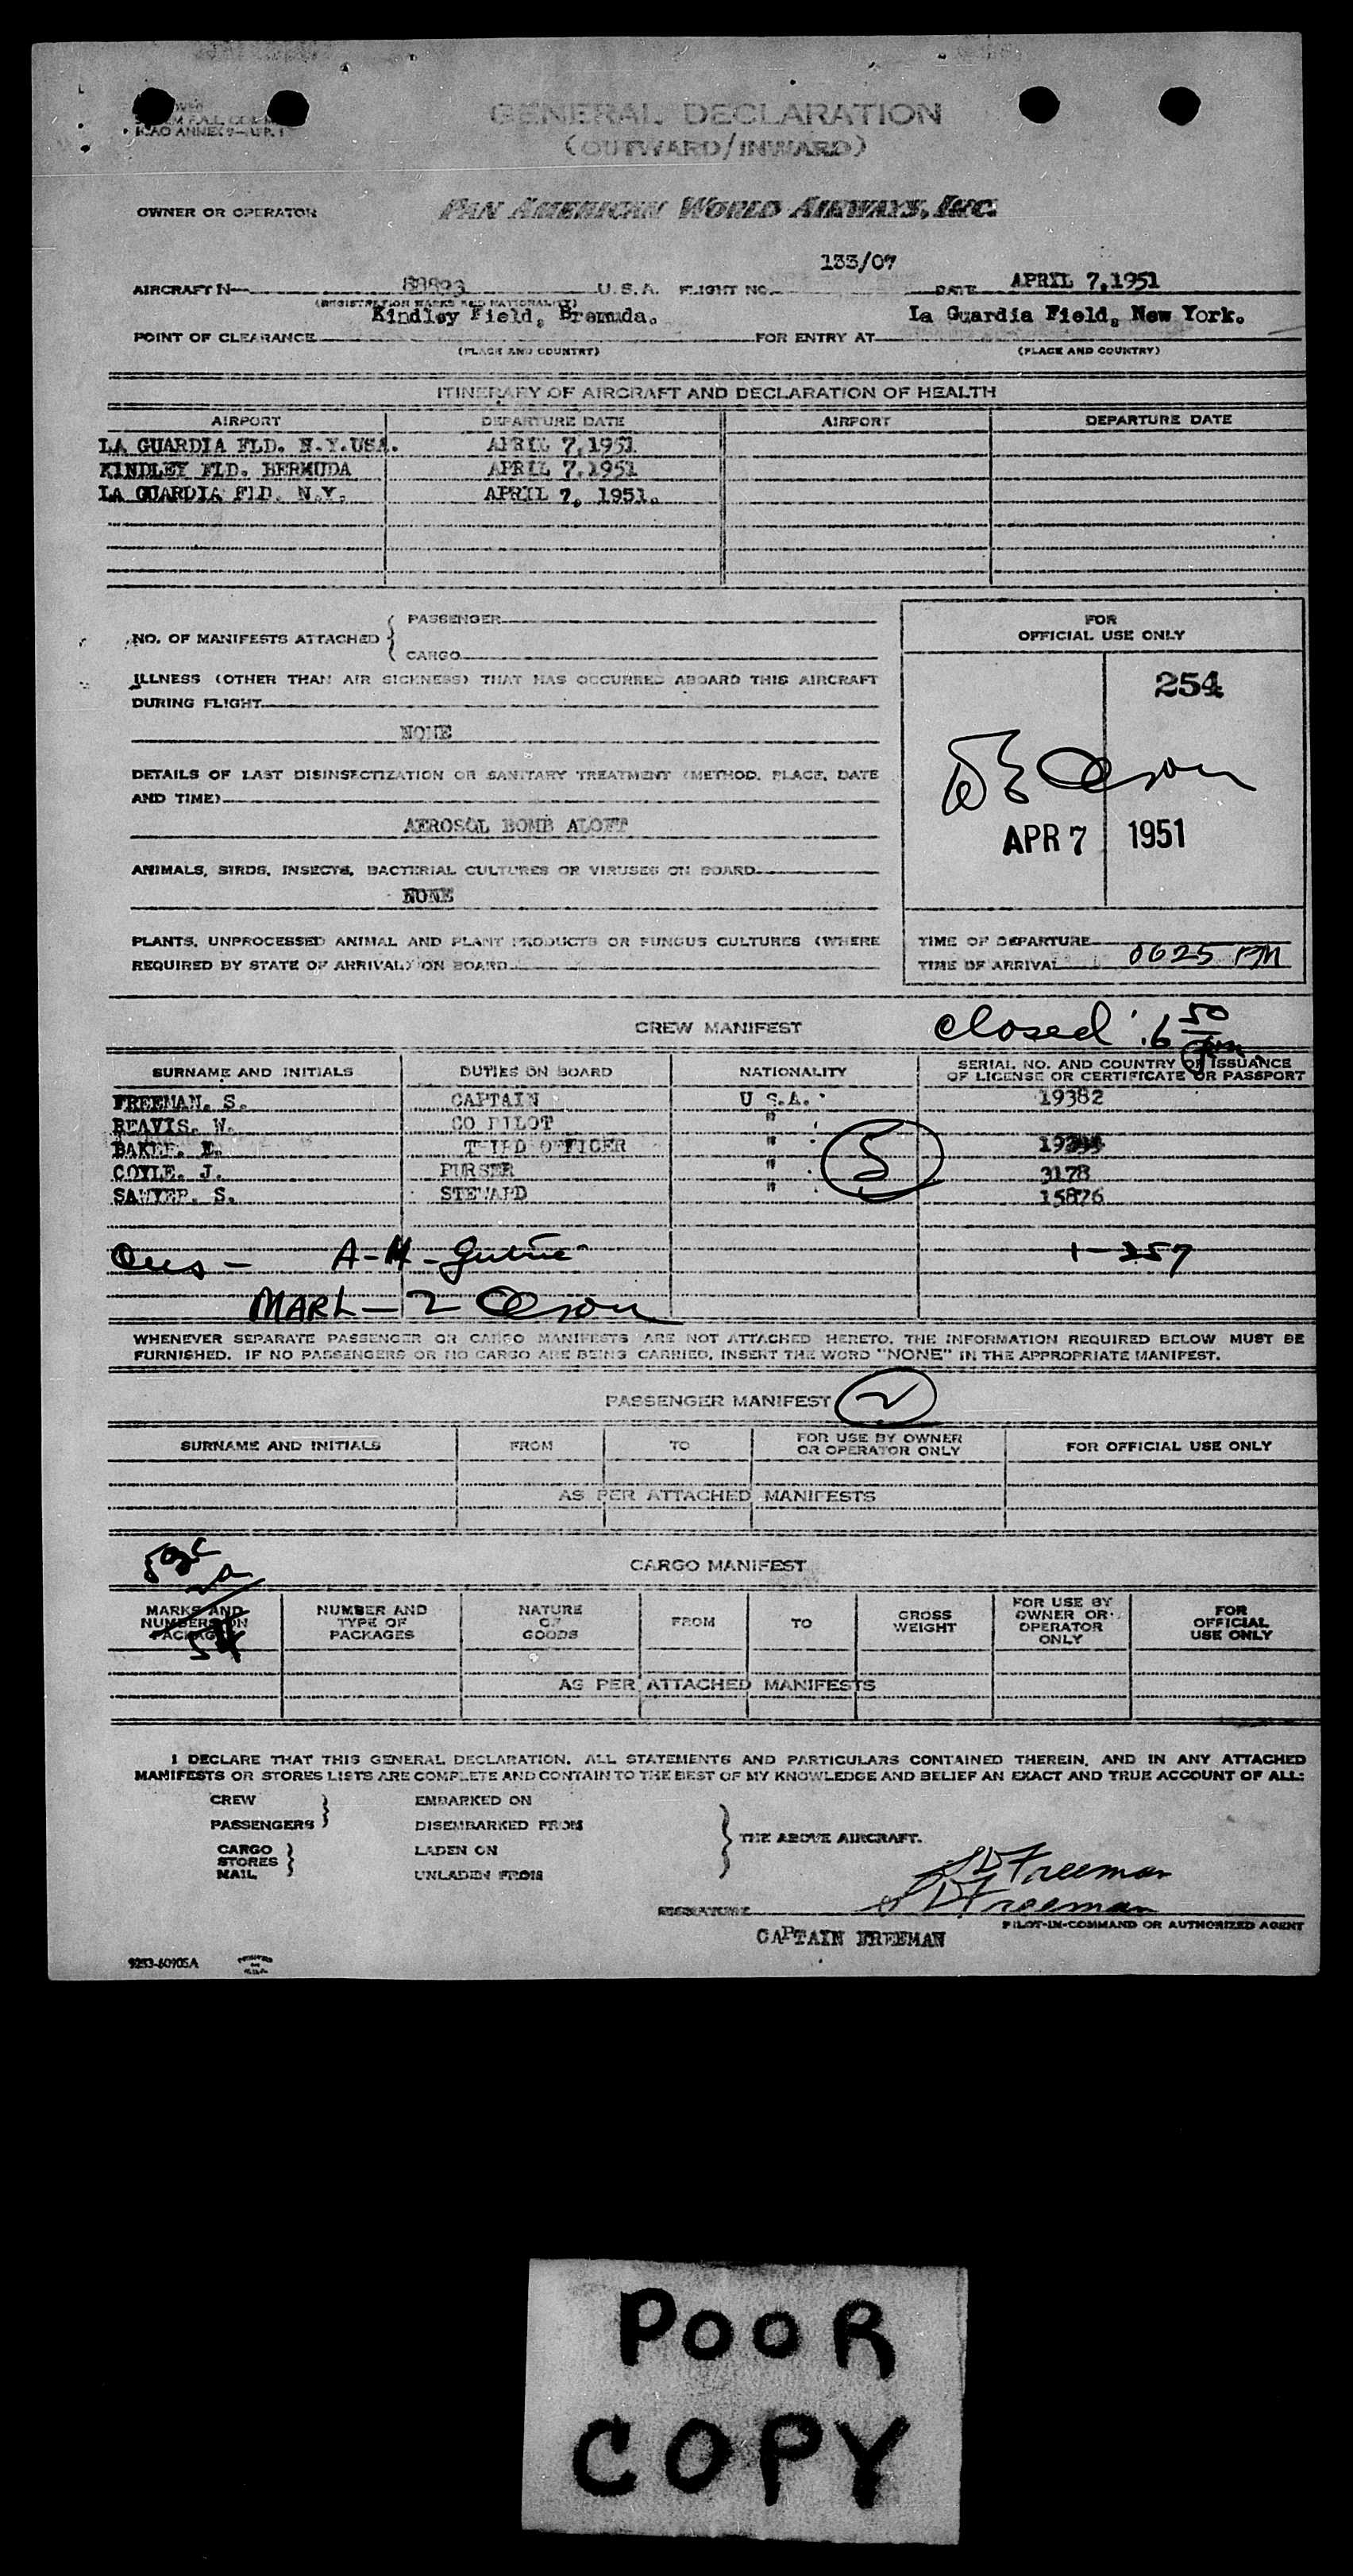 ICAO ANNEX 9—APP. 1
GENERAL DECLARATION
(OUTWARD/INWARD)
OWNER OR OPERATOR PAN AMERICAN WORLD AIRWAYS, INC.
133/07
AIRCRAFT N— 88893 U.S.A. FLIGHT NO. DATE APRIL 7,1951
(REGISTRATION MARKS AND NATIONALITY)
Kindley Field, Bremuda. La Guardia Field, New York.
POINT OF CLEARANCE FOR ENTRY AT
(PLACE AND COUNTRY) (PLACE AND COUNTRY)
ITINERARY OF AIRCRAFT AND DECLARATION OF HEALTH
AIRPORT DEPARTURE DATE AIRPORT DEPARTURE DATE
LA GUARDIA FLD. N.Y.USA. APRIL 7,1951
KINDLEY FLD. BERMUDA APRIL 7,1951
LA GUARDIA FLD. N.Y. APRIL 7, 1951.
NO. OF MANIFESTS ATTACHED { PASSENGER
CARGO
FOR
OFFICIAL USE ONLY
ILLNESS (OTHER THAN AIR SICKNESS) THAT HAS OCCURRED ABOARD THIS AIRCRAFT
DURING FLIGHT
NONE
254
DETAILS OF LAST DISINSECTIZATION OR SANITARY TREATMENT (METHOD, PLACE, DATE
AND TIME)
AEROSOL BOMB ALOFT
Olson
APR 7 1951
ANIMALS, BIRDS, INSECTS, BACTERIAL CULTURES OR VIRUSES ON BOARD
NONE
PLANTS, UNPROCESSED ANIMAL AND PLANT PRODUCTS OR FUNGUS CULTURES (WHERE
REQUIRED BY STATE OF ARRIVAL) ON BOARD
TIME OF DEPARTURE
TIME OF ARRIVAL 0625 PM
CREW MANIFEST closed 6 50 pm
SURNAME AND INITIALS DUTIES ON BOARD NATIONALITY SERIAL NO. AND COUNTRY OF ISSUANCE
OF LICENSE OR CERTIFICATE OR PASSPORT
FREEMAN. S. CAPTAIN U.S.A. 19382
BEAVIS. W. CO PILOT "
BAKER. E. THIRD OFFICER "
COYLE. J. PURSER " 3178
SAWYER. S. STEWARD " 15876
5
A-H- 1-257
MARL- 2 Olson
WHENEVER SEPARATE PASSENGER OR CARGO MANIFESTS ARE NOT ATTACHED HERETO, THE INFORMATION REQUIRED BELOW MUST BE
FURNISHED. IF NO PASSENGERS OR NO CARGO ARE BEING CARRIED, INSERT THE WORD "NONE" IN THE APPROPRIATE MANIFEST.
PASSENGER MANIFEST
SURNAME AND INITIALS FROM TO FOR USE BY OWNER
OR OPERATOR ONLY FOR OFFICIAL USE ONLY
AS PER ATTACHED MANIFESTS
CARGO MANIFEST
MARKS AND
NUMBERS ON
PACKAGES NUMBER AND
TYPE OF
PACKAGES NATURE
OF
GOODS FROM TO GROSS
WEIGHT FOR USE BY
OWNER OR
OPERATOR
ONLY FOR
OFFICIAL
USE ONLY
AS PER ATTACHED MANIFESTS
I DECLARE THAT THIS GENERAL DECLARATION, ALL STATEMENTS AND PARTICULARS CONTAINED THEREIN, AND IN ANY ATTACHED
MANIFESTS OR STORES LISTS ARE COMPLETE AND CONTAIN TO THE BEST OF MY KNOWLEDGE AND BELIEF AN EXACT AND TRUE ACCOUNT OF ALL:
CREW EMBARKED ON
PASSENGERS } DISEMBARKED FROM
THE ABOVE AIRCRAFT.
CARGO LADEN ON
STORES }
MAIL UNLADEN FROM
S D Freeman
SIGNATURE S D Freeman
PILOT-IN-COMMAND OR AUTHORIZED AGENT
CAPTAIN FREEMAN
9253-60905A PRINTED IN U.S.A.
POOR
COPY